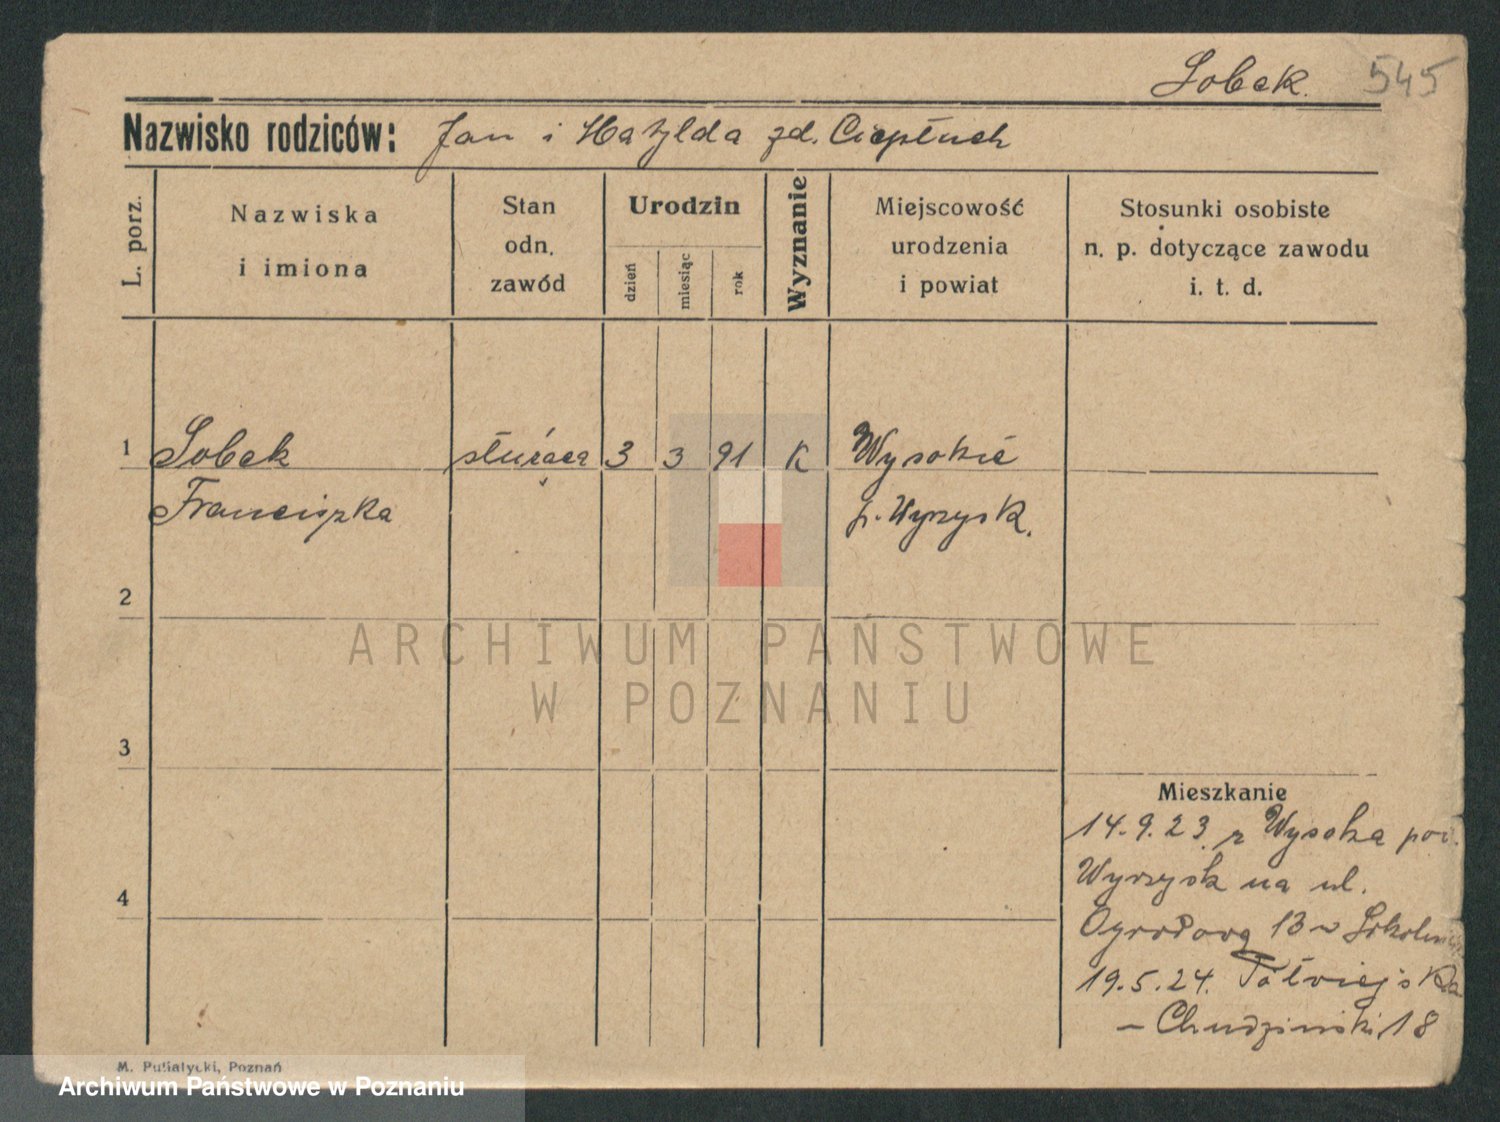 Sobek. 545
Nazwisko rodziców: Jan i Matylda zd. Ciepłuch
L. porz.
Nazwiska
i imiona
Stan
odn.
zawód
Urodzin
dzień
miesiąc
rok
Wyznanie
Miejscowość
urodzenia
i powiat
Stosunki osobiste
n. p. dotyczące zawodu
i. t. d.
1 Sobek służąca 3 3 91 K Wysokie
Franciszka p. Wyrzysk.
2
ARCHIWUM PAŃSTWOWE
W POZNANIU
3
Mieszkanie
14.9.23 z Wysoka pow.
4 Wyrzysk na ul.
Ogrodową 13
19.5.24. Półwiejska
– Chudziński 18
M. Putiatycki, Poznań
Archiwum Państwowe w Poznaniu